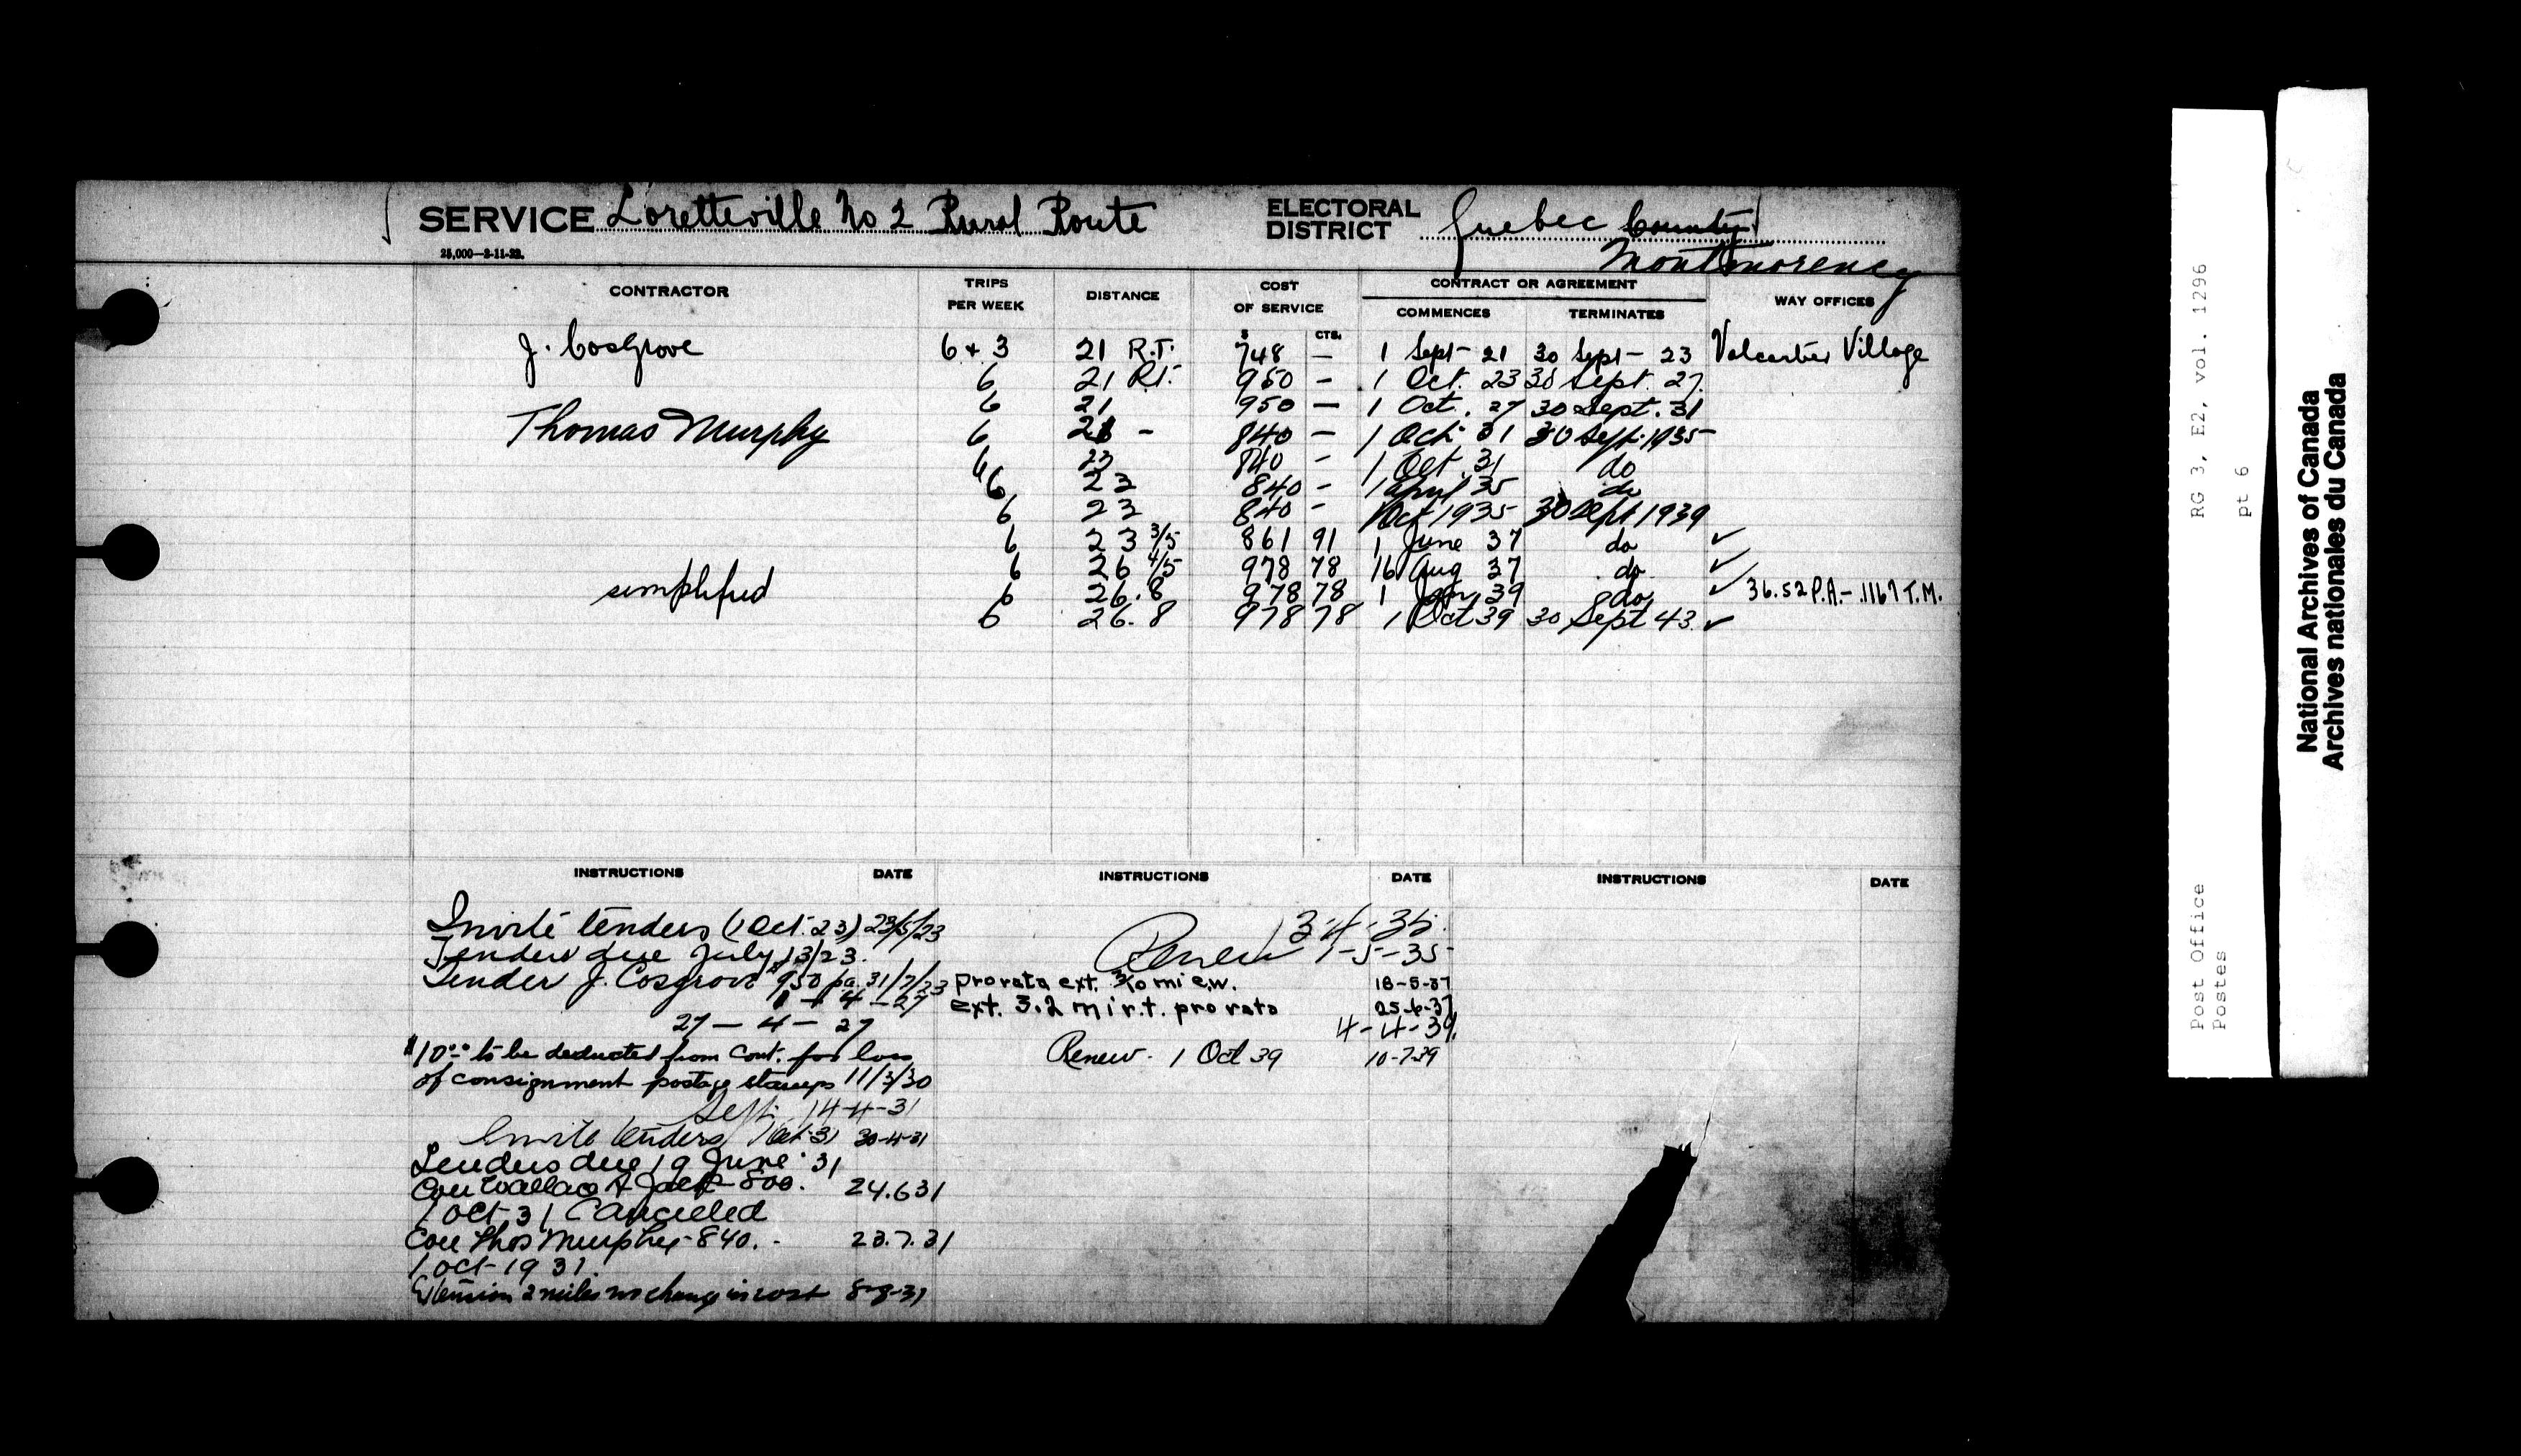 SERVICE Loretteville No 2 Rural Route
ELECTORAL DISTRICT Quebec County
Montmorency
25,000—2-11-22.
CONTRACTOR TRIPS PER WEEK DISTANCE COST OF SERVICE CONTRACT OR AGREEMENT WAY OFFICES
$ CTS. COMMENCES TERMINATES
J. Cosgrove 6 + 3 21 R.T. 748 — 1 Sept - 21 30 Sept - 23 Valcartier Village
6 21 R.T. 950 — 1 Oct. 23 30 Sept. 27
6 21 950 — 1 Oct. 27 30 Sept. 31
Thomas Murphy 6 21 - 840 — 1 Oct. 31 30 Sept. 1935
6 23 840 - 1 Oct. 31 do
6 23 840 - 1 April 35 do
6 23 840 - 1 Oct 1935 30 Sept 1939
6 23 3/5 861 91 1 June 37 do ✓
6 26 4/5 978 78 16 Aug 37 do ✓
simplified 6 26.8 978 78 1 Jan 39 do ✓ 36.52 P.A. - .1167 T.M.
6 26.8 978 78 1 Oct 39 30 Sept 43 ✓
INSTRUCTIONS DATE INSTRUCTIONS DATE INSTRUCTIONS DATE
Invite tenders (1 Oct. 23) 23/5/23
Tenders due July 13/23.
Tender J. Cosgrove $950 pa. 31/7/23
1 - 4 - 27
27 - 4 - 27
$10.00 to be deducted from Cont. for loss
of consignment postage stamps 11/3/30
Sept. 14-4-31
Invite tenders 1 Oct. 31 30-4-31
Tenders due 19 June 31
Con Wallace Jack 800. 24.6.31
1 Oct 31 Cancelled
Con Thos Murphy - 840. - 23.7.31
1 Oct - 1931.
Extension 2 miles no change in cost 8-8-31
3-4-35.
Renew 1-5-35
pro rata ext. 3/10 mi e.w. 18-5-37
ext. 3.2 mi r.t. pro rata 25-6-37
4-4-39
Renew. 1 Oct 39 10-7-39
RG 3, E2, vol. 1296
pt 6
Post Office
Postes
National Archives of Canada
Archives nationales du Canada